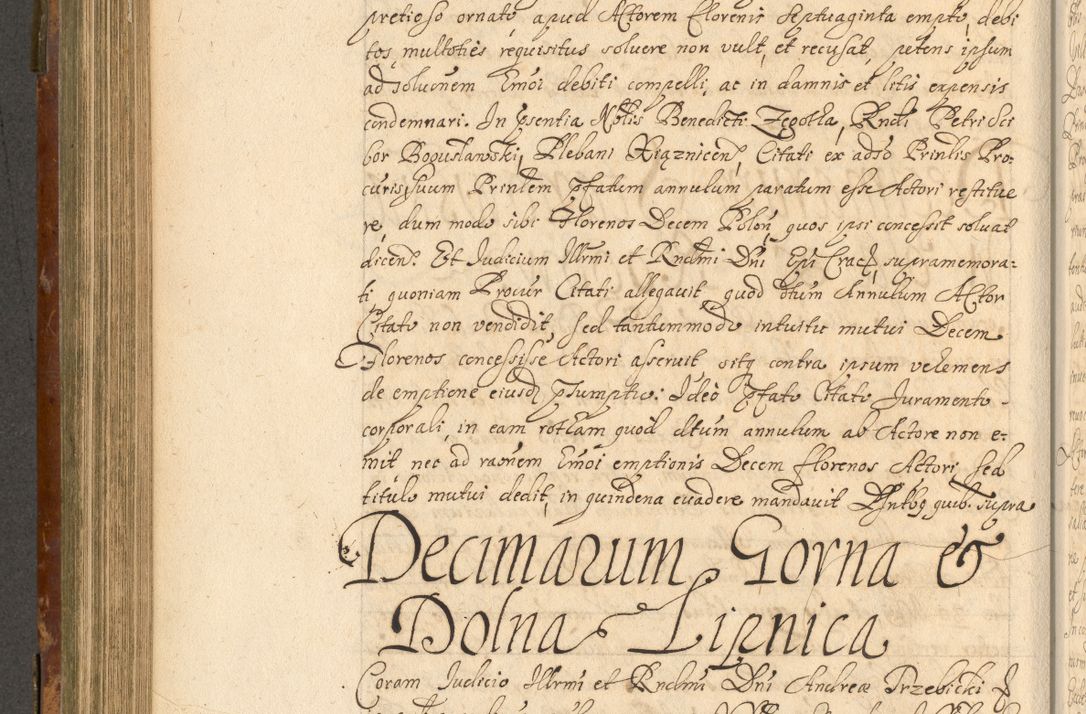 pretioso ornato apud Actorem florenis septuaginta empto, debi
tos, multoties requisitus soluere non vult, et recusat, petens ipsum
ad soluõnem Emõi debiti compelli, ac in damnis et litis expensis
condemnari. In p̃sentia Nõlis Benedicti Zegotta, Rndi Petri Sci
bor Bogusławski, Plebani Xiąznicen, Citati ex adso Prinlis Pro:
curis, suum Prinlem p̃fatum annulum paratum esse Actori restitue
re, dum modo sibi Florenos Decem Polon, quos ipsi concessit soluat
dicen. Et Judicium Illrmi et Rndmi Dni Epi Crac, supramemora:
ti quoniam Procur Citati allegauit, quod dtum Annulum Actor
Citato non vendidit, sed tantummodo intuitu mutui Decem
Florenos concessisse Actori asseruit, sitq contra ipsum vehemens
de emptione eiusd p̃sumptio: Ideo p̃fato Citato Juramento
corporali, in eam rotham quod dtum annulum ab Actore non e:
mit nec ad raõnem Emõi emptionis Decem florenos Actori, sed
titulo mutui dedit, in quindena euadere mandauit Pn̄tbq quib. supra
Decimarum Gorna &
Dolna Lipnica
Coram Judicio Illrmi et Rndmi Dni Andreæ Trzebicki